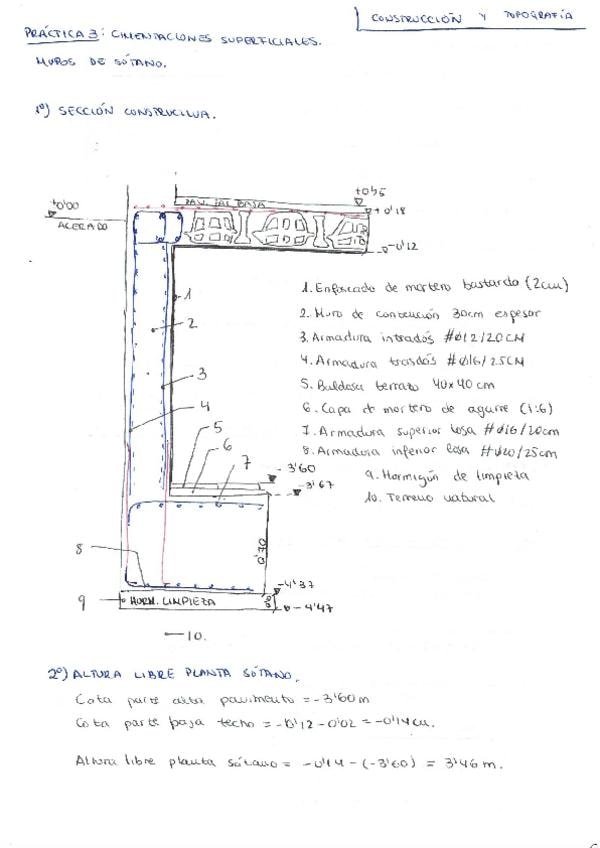 CONSTRUCCIÓN Y TOPOGRAFÍA
PRÁCTICA 3: CIMENTACIONES SUPERFICIALES.
MUROS DE SÓTANO.
1º) SECCIÓN CONSTRUCTIVA.
+0'45
PAV. PL. BAJA
+0'00
+0'18
ACERADO
-0'12
1. Enfoscado de mortero bastardo (2cm)
2. Muro de contención 30cm espesor
3. Armadura intradós #Ø12/20CM
4. Armadura trasdós #Ø16/25CM
5. Baldosa terrazo 40x40cm
6. Capa de mortero de agarre (1:6)
7. Armadura superior losa #Ø16/20cm
8. Armadura inferior losa #Ø20/25cm
9. Hormigón de limpieza
10. Terreno natural
1
2
3
4
5
6
7
-3'60
-3'67
0'70
8
-4'37
9
HORM. LIMPIEZA
-4'47
10.
2º) ALTURA LIBRE PLANTA SÓTANO.
Cota parte alta pavimento = -3'60m
Cota parte baja techo = -0'12-0'02 = -0'14cm.
Altura libre planta sótano = -0'14-(-3'60) = 3'46m.